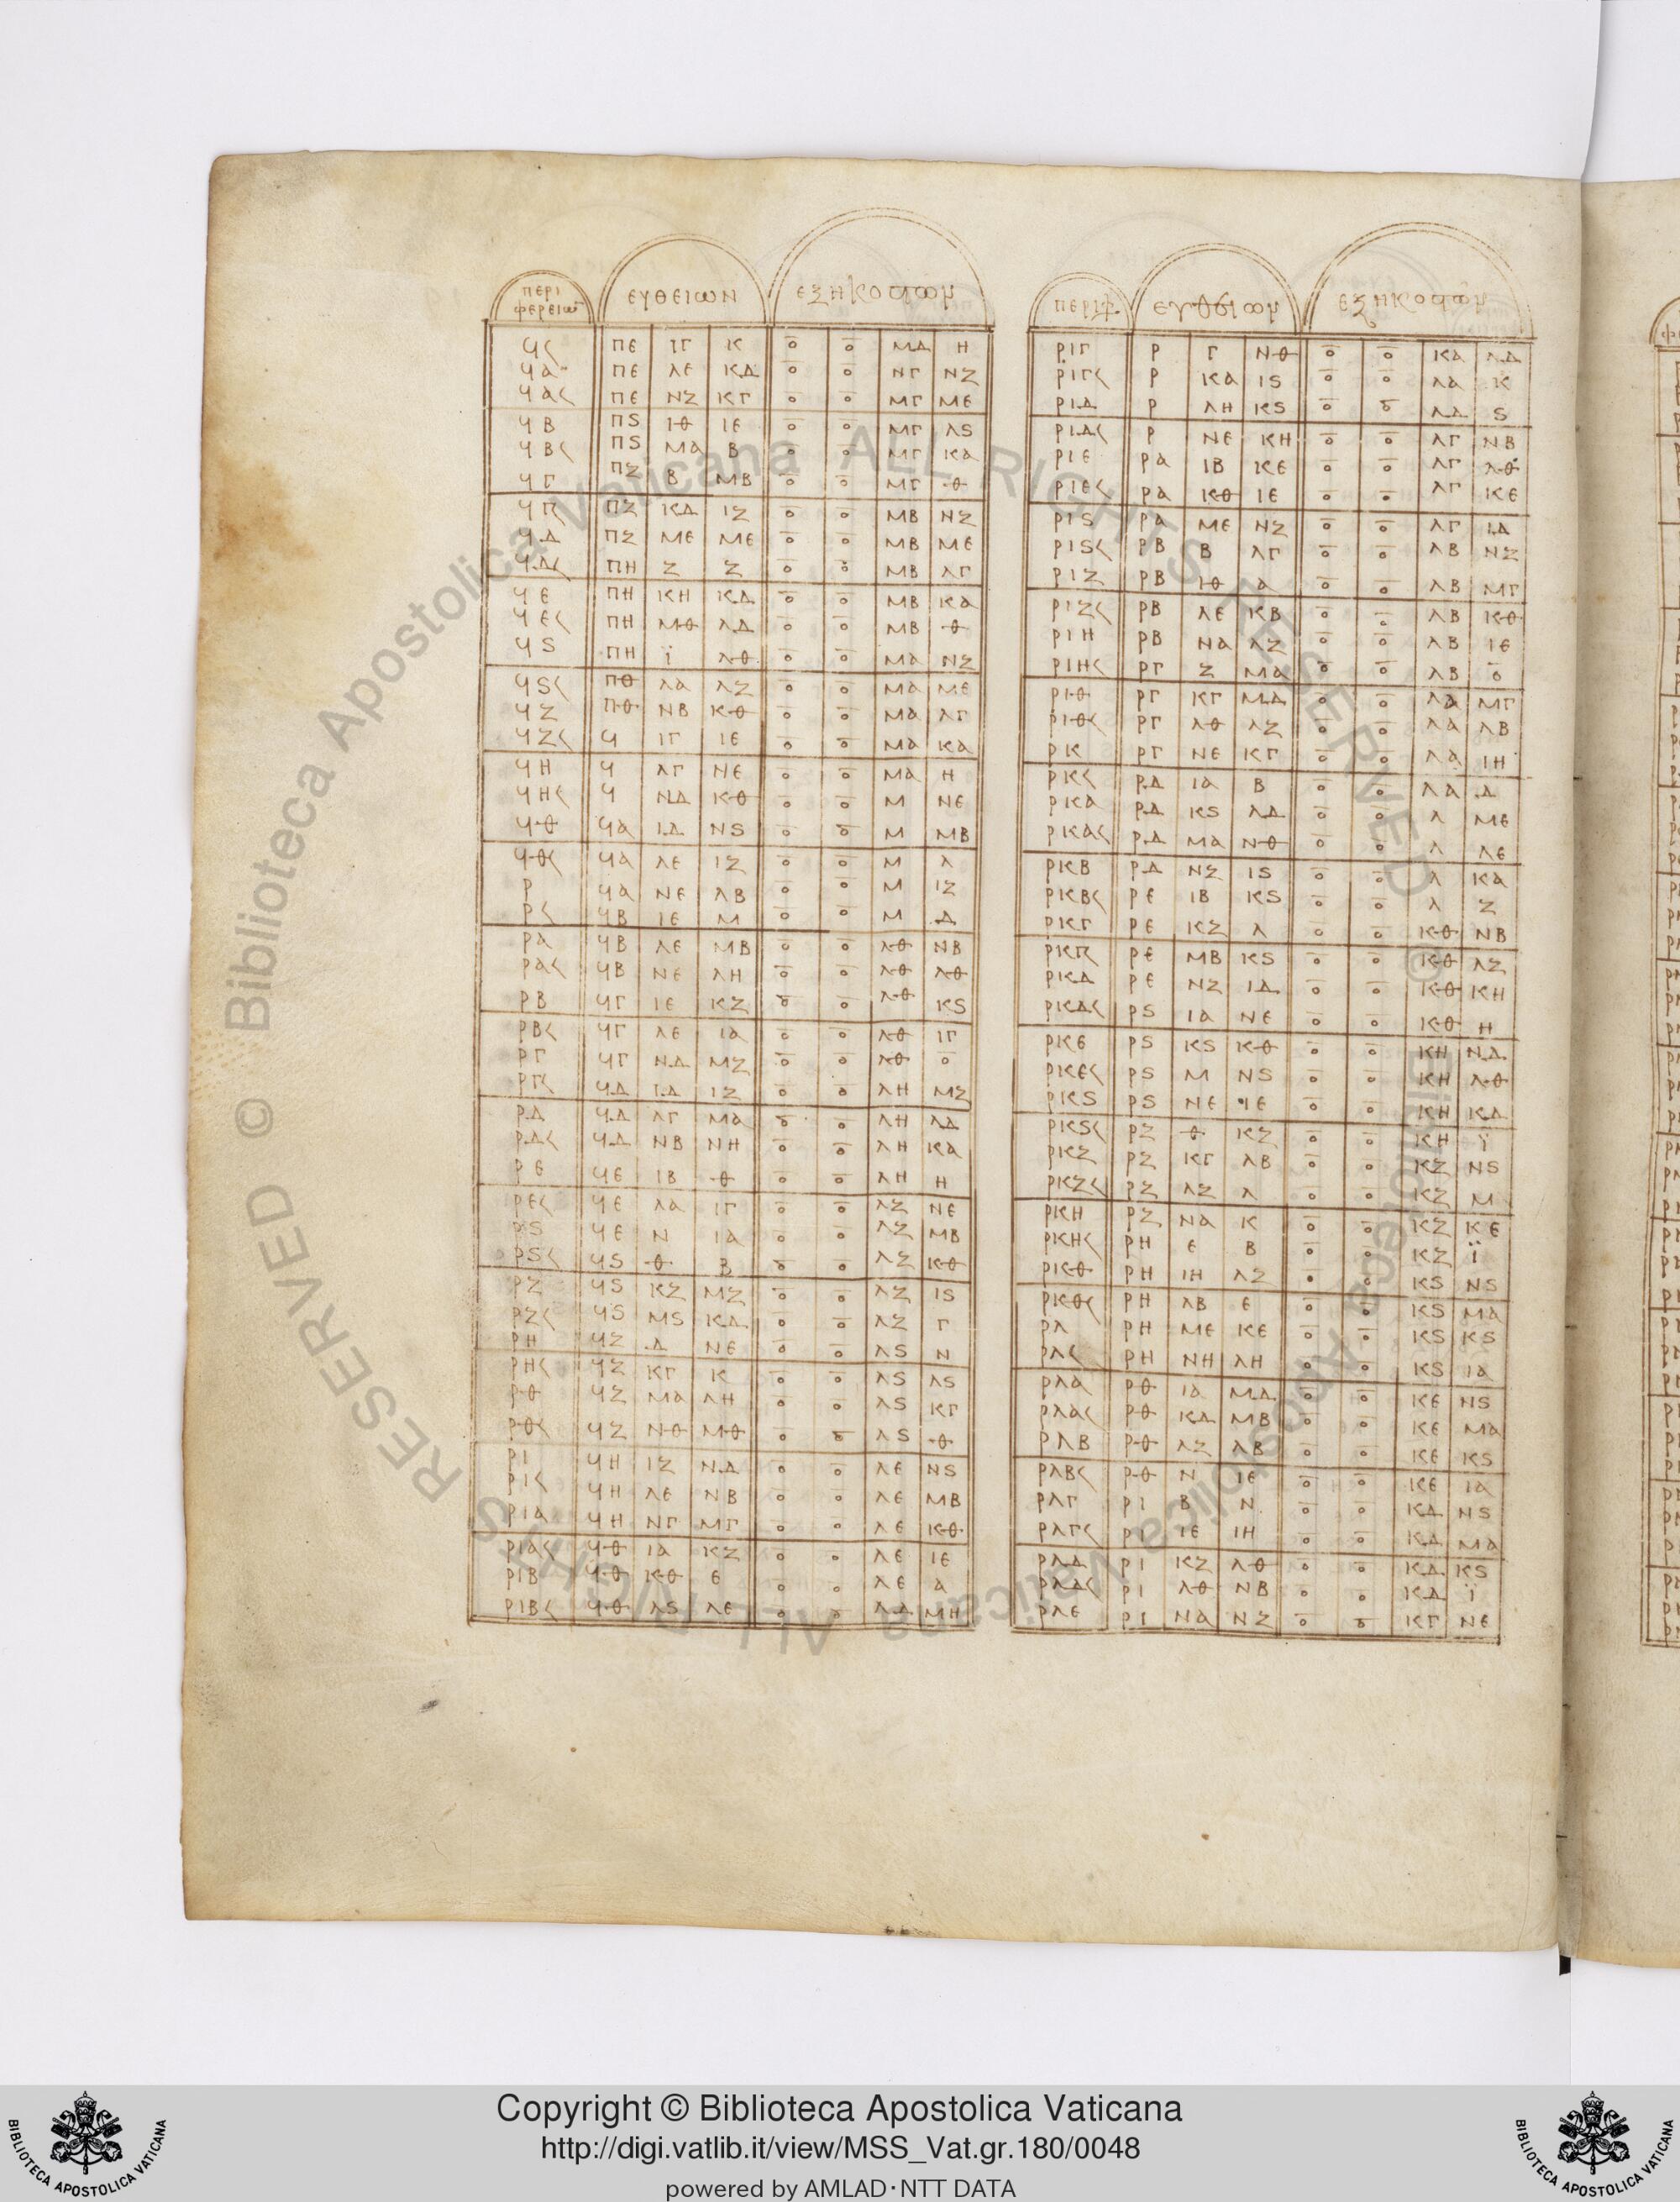 ΠΕΡΙΦΕΡΕΙΩ̅ ΕΥΘΕΙΩΝ ΕΞΗΚΟϹΤΩΝ
Ϟ∠ ΠΕ ΙΓ Κ ο̅ ο̅ ΜΔ Η
ϞΑ ΠΕ ΛΕ ΚΔ ο̅ ο̅ ΝΓ ΝΖ
ϞΑ∠ ΠΕ ΝΖ ΚΓ ο̅ ο̅ ΜΓ ΜΕ
ϞΒ Πϛ ΙΘ ΙΕ ο̅ ο̅ ΜΓ Λϛ
ϞΒ∠ Πϛ ΜΑ Β ο̅ ο̅ ΜΓ ΚΑ
ϞΓ ΠΖ Β ΜΒ ο̅ ο̅ ΜΓ Θ
ϞΓ∠ ΠΖ ΚΔ ΙΖ ο̅ ο̅ ΜΒ ΝΖ
ϞΔ ΠΖ ΜΕ ΜΕ ο̅ ο̅ ΜΒ ΜΕ
ϞΔ∠ ΠΗ Ζ Ζ ο̅ ο̅ ΜΒ ΛΓ
ϞΕ ΠΗ ΚΗ ΚΔ ο̅ ο̅ ΜΒ ΚΑ
ϞΕ∠ ΠΗ ΜΘ ΛΔ ο̅ ο̅ ΜΒ Θ
Ϟϛ ΠΗ Ϊ ΛΘ ο̅ ο̅ ΜΑ ΝΖ
Ϟϛ∠ ΠΘ ΛΑ ΛΖ ο̅ ο̅ ΜΑ ΜΕ
ϞΖ ΠΘ ΝΒ ΚΘ ο̅ ο̅ ΜΑ ΛΓ
ϞΖ∠ Ϟ ΙΓ ΙΕ ο̅ ο̅ ΜΑ ΚΑ
ϞΗ Ϟ ΛΓ ΝΕ ο̅ ο̅ ΜΑ Η
ϞΗ∠ Ϟ ΝΔ ΚΘ ο̅ ο̅ Μ ΝΕ
ϞΘ ϞΑ ΙΔ Νϛ ο̅ ο̅ Μ ΜΒ
ϞΘ∠ ϞΑ ΛΕ ΙΖ ο̅ ο̅ Μ Λ
Ρ ϞΑ ΝΕ ΛΒ ο̅ ο̅ Μ ΙΖ
Ρ∠ ϞΒ ΙΕ Μ ο̅ ο̅ Μ Δ
ΡΑ ϞΒ ΛΕ ΜΒ ο̅ ο̅ ΛΘ ΝΒ
ΡΑ∠ ϞΒ ΝΕ ΛΗ ο̅ ο̅ ΛΘ ΛΘ
ΡΒ ϞΓ ΙΕ ΚΖ ο̅ ο̅ ΛΘ Κϛ
ΡΒ∠ ϞΓ ΛΕ ΙΑ ο̅ ο̅ ΛΘ ΙΓ
ΡΓ ϞΓ ΝΔ ΜΖ ο̅ ο̅ ΛΘ ο̅
ΡΓ∠ ϞΔ ΙΔ ΙΖ ο̅ ο̅ ΛΗ ΜΖ
ΡΔ ϞΔ ΛΓ ΜΑ ο̅ ο̅ ΛΗ ΛΔ
ΡΔ∠ ϞΔ ΝΒ ΝΗ ο̅ ο̅ ΛΗ ΚΑ
ΡΕ ϞΕ ΙΒ Θ ο̅ ο̅ ΛΗ Η
ΡΕ∠ ϞΕ ΛΑ ΙΓ ο̅ ο̅ ΛΖ ΝΕ
Ρϛ ϞΕ Ν ΙΑ ο̅ ο̅ ΛΖ ΜΒ
Ρϛ∠ Ϟϛ Θ Β ο̅ ο̅ ΛΖ ΚΘ
ΡΖ Ϟϛ ΚΖ ΜΖ ο̅ ο̅ ΛΖ Ιϛ
ΡΖ∠ Ϟϛ Μϛ ΚΔ ο̅ ο̅ ΛΖ Γ
ΡΗ ϞΖ Δ ΝΕ ο̅ ο̅ Λϛ Ν
ΡΗ∠ ϞΖ ΚΓ Κ ο̅ ο̅ Λϛ Λϛ
ΡΘ ϞΖ ΜΑ ΛΗ ο̅ ο̅ Λϛ ΚΓ
ΡΘ∠ ϞΖ ΝΘ ΜΘ ο̅ ο̅ Λϛ Θ
ΡΙ ϞΗ ΙΖ ΝΔ ο̅ ο̅ ΛΕ Νϛ
ΡΙ∠ ϞΗ ΛΕ ΝΒ ο̅ ο̅ ΛΕ ΜΒ
ΡΙΑ ϞΗ ΝΓ ΜΓ ο̅ ο̅ ΛΕ ΚΘ
ΡΙΑ∠ ϞΘ ΙΑ ΚΖ ο̅ ο̅ ΛΕ ΙΕ
ΡΙΒ ϞΘ ΚΘ Ε ο̅ ο̅ ΛΕ Α
ΡΙΒ∠ ϞΘ Λϛ ΛΕ ο̅ ο̅ ΛΔ ΜΗ
ΠΕΡΙΦ ΕΥΘΕΙΩΝ ΕΞΗΚΟϹΤΩΝ
ΡΙΓ Ρ Γ ΝΘ ο̅ ο̅ ΚΑ ΛΔ
ΡΙΓ∠ Ρ ΚΑ Ιϛ ο̅ ο̅ ΛΑ Κ
ΡΙΔ Ρ ΛΗ Κϛ ο̅ ο̅ ΛΔ ϛ
ΡΙΔ∠ Ρ ΝΕ ΚΗ ο̅ ο̅ ΛΓ ΝΒ
ΡΙΕ ΡΑ ΙΒ ΚΕ ο̅ ο̅ ΛΓ ΛΘ
ΡΙΕ∠ ΡΑ ΚΘ ΙΕ ο̅ ο̅ ΛΓ ΚΕ
ΡΙϛ ΡΑ ΜΕ ΝΖ ο̅ ο̅ ΛΓ ΙΔ
ΡΙϛ∠ ΡΒ Β ΛΓ ο̅ ο̅ ΛΒ ΝΖ
ΡΙΖ ΡΒ ΙΘ Α ο̅ ο̅ ΛΒ ΜΓ
ΡΙΖ∠ ΡΒ ΛΕ ΚΒ ο̅ ο̅ ΛΒ ΚΘ
ΡΙΗ ΡΒ ΝΑ ΛΖ ο̅ ο̅ ΛΒ ΙΕ
ΡΙΗ∠ ΡΓ Ζ ΜΑ ο̅ ο̅ ΛΒ ο̅
ΡΙΘ ΡΓ ΚΓ ΜΔ ο̅ ο̅ ΛΑ ΜΓ
ΡΙΘ∠ ΡΓ ΛΘ ΛΖ ο̅ ο̅ ΛΑ ΛΒ
ΡΚ ΡΓ ΝΕ ΚΓ ο̅ ο̅ ΛΑ ΙΗ
ΡΚ∠ ΡΔ ΙΑ Β ο̅ ο̅ ΛΑ Δ
ΡΚΑ ΡΔ Κϛ ΛΔ ο̅ ο̅ Λ ΜΕ
ΡΚΑ∠ ΡΔ ΜΑ ΝΘ ο̅ ο̅ Λ ΛΕ
ΡΚΒ ΡΔ ΝΖ Ιϛ ο̅ ο̅ Λ ΚΑ
ΡΚΒ∠ ΡΕ ΙΒ Κϛ ο̅ ο̅ Λ Ζ
ΡΚΓ ΡΕ ΚΖ Λ ο̅ ο̅ ΚΘ ΝΒ
ΡΚΓ∠ ΡΕ ΜΒ Κϛ ο̅ ο̅ ΚΘ ΛΖ
ΡΚΔ ΡΕ ΝΖ ΙΔ ο̅ ο̅ ΚΘ ΚΗ
ΡΚΔ∠ Ρϛ ΙΑ ΝΕ ο̅ ο̅ ΚΘ Η
ΡΚΕ Ρϛ Κϛ ΚΘ ο̅ ο̅ ΚΗ ΝΔ
ΡΚΕ∠ Ρϛ Μ Νϛ ο̅ ο̅ ΚΗ ΛΘ
ΡΚϛ Ρϛ ΝΕ ΙΕ ο̅ ο̅ ΚΗ ΚΔ
ΡΚϛ∠ ΡΖ Θ ΚΖ ο̅ ο̅ ΚΗ Ϊ
ΡΚΖ ΡΖ ΚΓ ΛΒ ο̅ ο̅ ΚΖ Νϛ
ΡΚΖ∠ ΡΖ ΛΖ Λ ο̅ ο̅ ΚΖ Μ
ΡΚΗ ΡΖ ΝΑ Κ ο̅ ο̅ ΚΖ ΚΕ
ΡΚΗ∠ ΡΗ Ε Β ο̅ ο̅ ΚΖ Ϊ
ΡΚΘ ΡΗ ΙΗ ΛΖ ο̅ ο̅ Κϛ Νϛ
ΡΚΘ∠ ΡΗ ΛΒ Ε ο̅ ο̅ Κϛ ΜΑ
ΡΛ ΡΗ ΜΕ ΚΕ ο̅ ο̅ Κϛ Κϛ
ΡΛ∠ ΡΗ ΝΗ ΛΗ ο̅ ο̅ Κϛ ΙΑ
ΡΛΑ ΡΘ ΙΑ ΜΔ ο̅ ο̅ ΚΕ Νϛ
ΡΛΑ∠ ΡΘ ΚΔ ΜΒ ο̅ ο̅ ΚΕ ΜΑ
ΡΛΒ ΡΘ ΛΖ ΛΒ ο̅ ο̅ ΚΕ Κϛ
ΡΛΒ∠ ΡΘ Ν ΙΕ ο̅ ο̅ ΚΕ ΙΑ
ΡΛΓ ΡΙ Β Ν ο̅ ο̅ ΚΔ Νϛ
ΡΛΓ∠ ΡΙ ΙΕ ΙΗ ο̅ ο̅ ΚΔ ΜΑ
ΡΛΔ ΡΙ ΚΖ ΛΘ ο̅ ο̅ ΚΔ Κϛ
ΡΛΔ∠ ΡΙ ΛΘ ΝΒ ο̅ ο̅ ΚΔ Ϊ
ΡΛΕ ΡΙ ΝΑ ΝΖ ο̅ ο̅ ΚΓ ΝΕ
© Biblioteca Apostolica Vaticana ALL RIGHTS RESERVED © Biblioteca Apostolica Vaticana ALL RIGHTS RESERVED
BIBLIOTECA APOSTOLICA VATICANA
Copyright © Biblioteca Apostolica Vaticana
http://digi.vatlib.it/view/MSS_Vat.gr.180/0048
powered by AMLAD·NTT DATA
BIBLIOTECA APOSTOLICA VATICANA